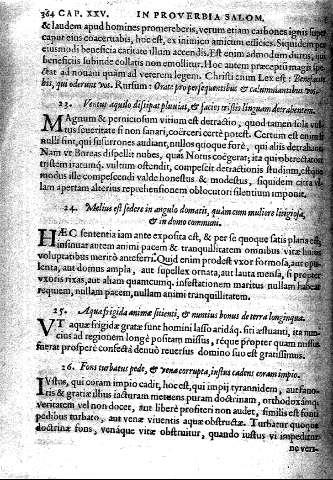 364 CAP. XXV. IN PROVERBIA SALOM.
& laudem apud homines promereberis, verum etiam carbones ignis super
caput eius coacervabis, hoc est, ex inimico amicum efficies. Siquidem per
eiusmodi beneficia caritate illum accendis. Est enim admodum durus, qui
beneficiis subinde collatis non emollitur. Hoc autem præceptum magis spe-
ctat ad nouam quàm ad veterem legem. Christi enim Lex est: Benefacite
iis, qui oderunt vos. Rursum: Orate pro persequentibus & calumniantibus vos.
23. Ventus aquilo dissipat pluuias, & facies tristis linguam detrahentem.
MAgnum & perniciosum vitium est detractio, quod tamen sola vul-
tus seueritate si non sanari, coërceri certè potest. Certum est enim si
nulli sint, qui susurrones audiant, nullos quoque forè, qui aliis detrahant.
Nam vt Boreas dispellit nubes, quas Notus coëgerat; ita qui obtrectatori
tristem, iracumq. vultum ostendit, compescit detractionis studium, estque
modus ille compescendi valde honestus & modestus, siquidem citra vl-
lam apertam alterius reprehensionem oblocutori silentium imponit.
24. Melius est sedere in angulo domatis, quàm cum muliere litigiosa,
& in domo communi.
HÆC sententia iam ante exposita est, & per se quoque satis plana est,
insinuat autem animi pacem & tranquillitatem omnibus vitæ huius
voluptatibus meritò anteferri. Quid enim prodest vxor formosa, aut opu-
lenta, aut domus ampla, aut supellex ornata, aut lauta mensa, si propter
vxoris rixas, aut aliam quamcumq. infestationem maritus nullam habeat
requiem, nullam pacem, nullam animi tranquillitatem.
25. Aqua frigida animæ sitienti, & nuntius bonus de terra longinqua.
VT aquæ frigidæ gratæ sunt homini lasso aridæq. siti æstuanti, ita nun-
cius ad regionem longè positam missus, reque propter quam missus
fuerat prosperè confectâ denuò reuersus domino suo est gratissimus.
26. Fons turbatus pede, & vena corrupta, iustus cadens coram impio.
IVstus, qui coram impio cadit, hoc est, qui impij tyrannidem, aut fauo-
ris & gratiæ illius iacturam metuens puram doctrinam, orthodoxamq.
veritatem vel non docet, aut liberè profiteri non audet, similis est fonti
pedibus turbato, aut venæ viuentis aquæ obstructæ. Turbatur quoque
doctrinæ fons, venáque vitæ obstruitur, quando iustus vi impeditur
ne veri-